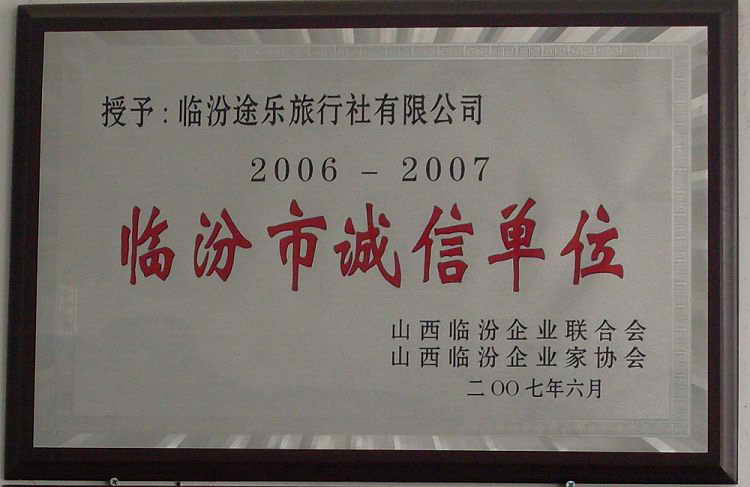 授予：临汾途乐旅行社有限公司
2006 – 2007
临汾市诚信单位
山西临汾企业联合会
山西临汾企业家协会
二〇〇七年六月